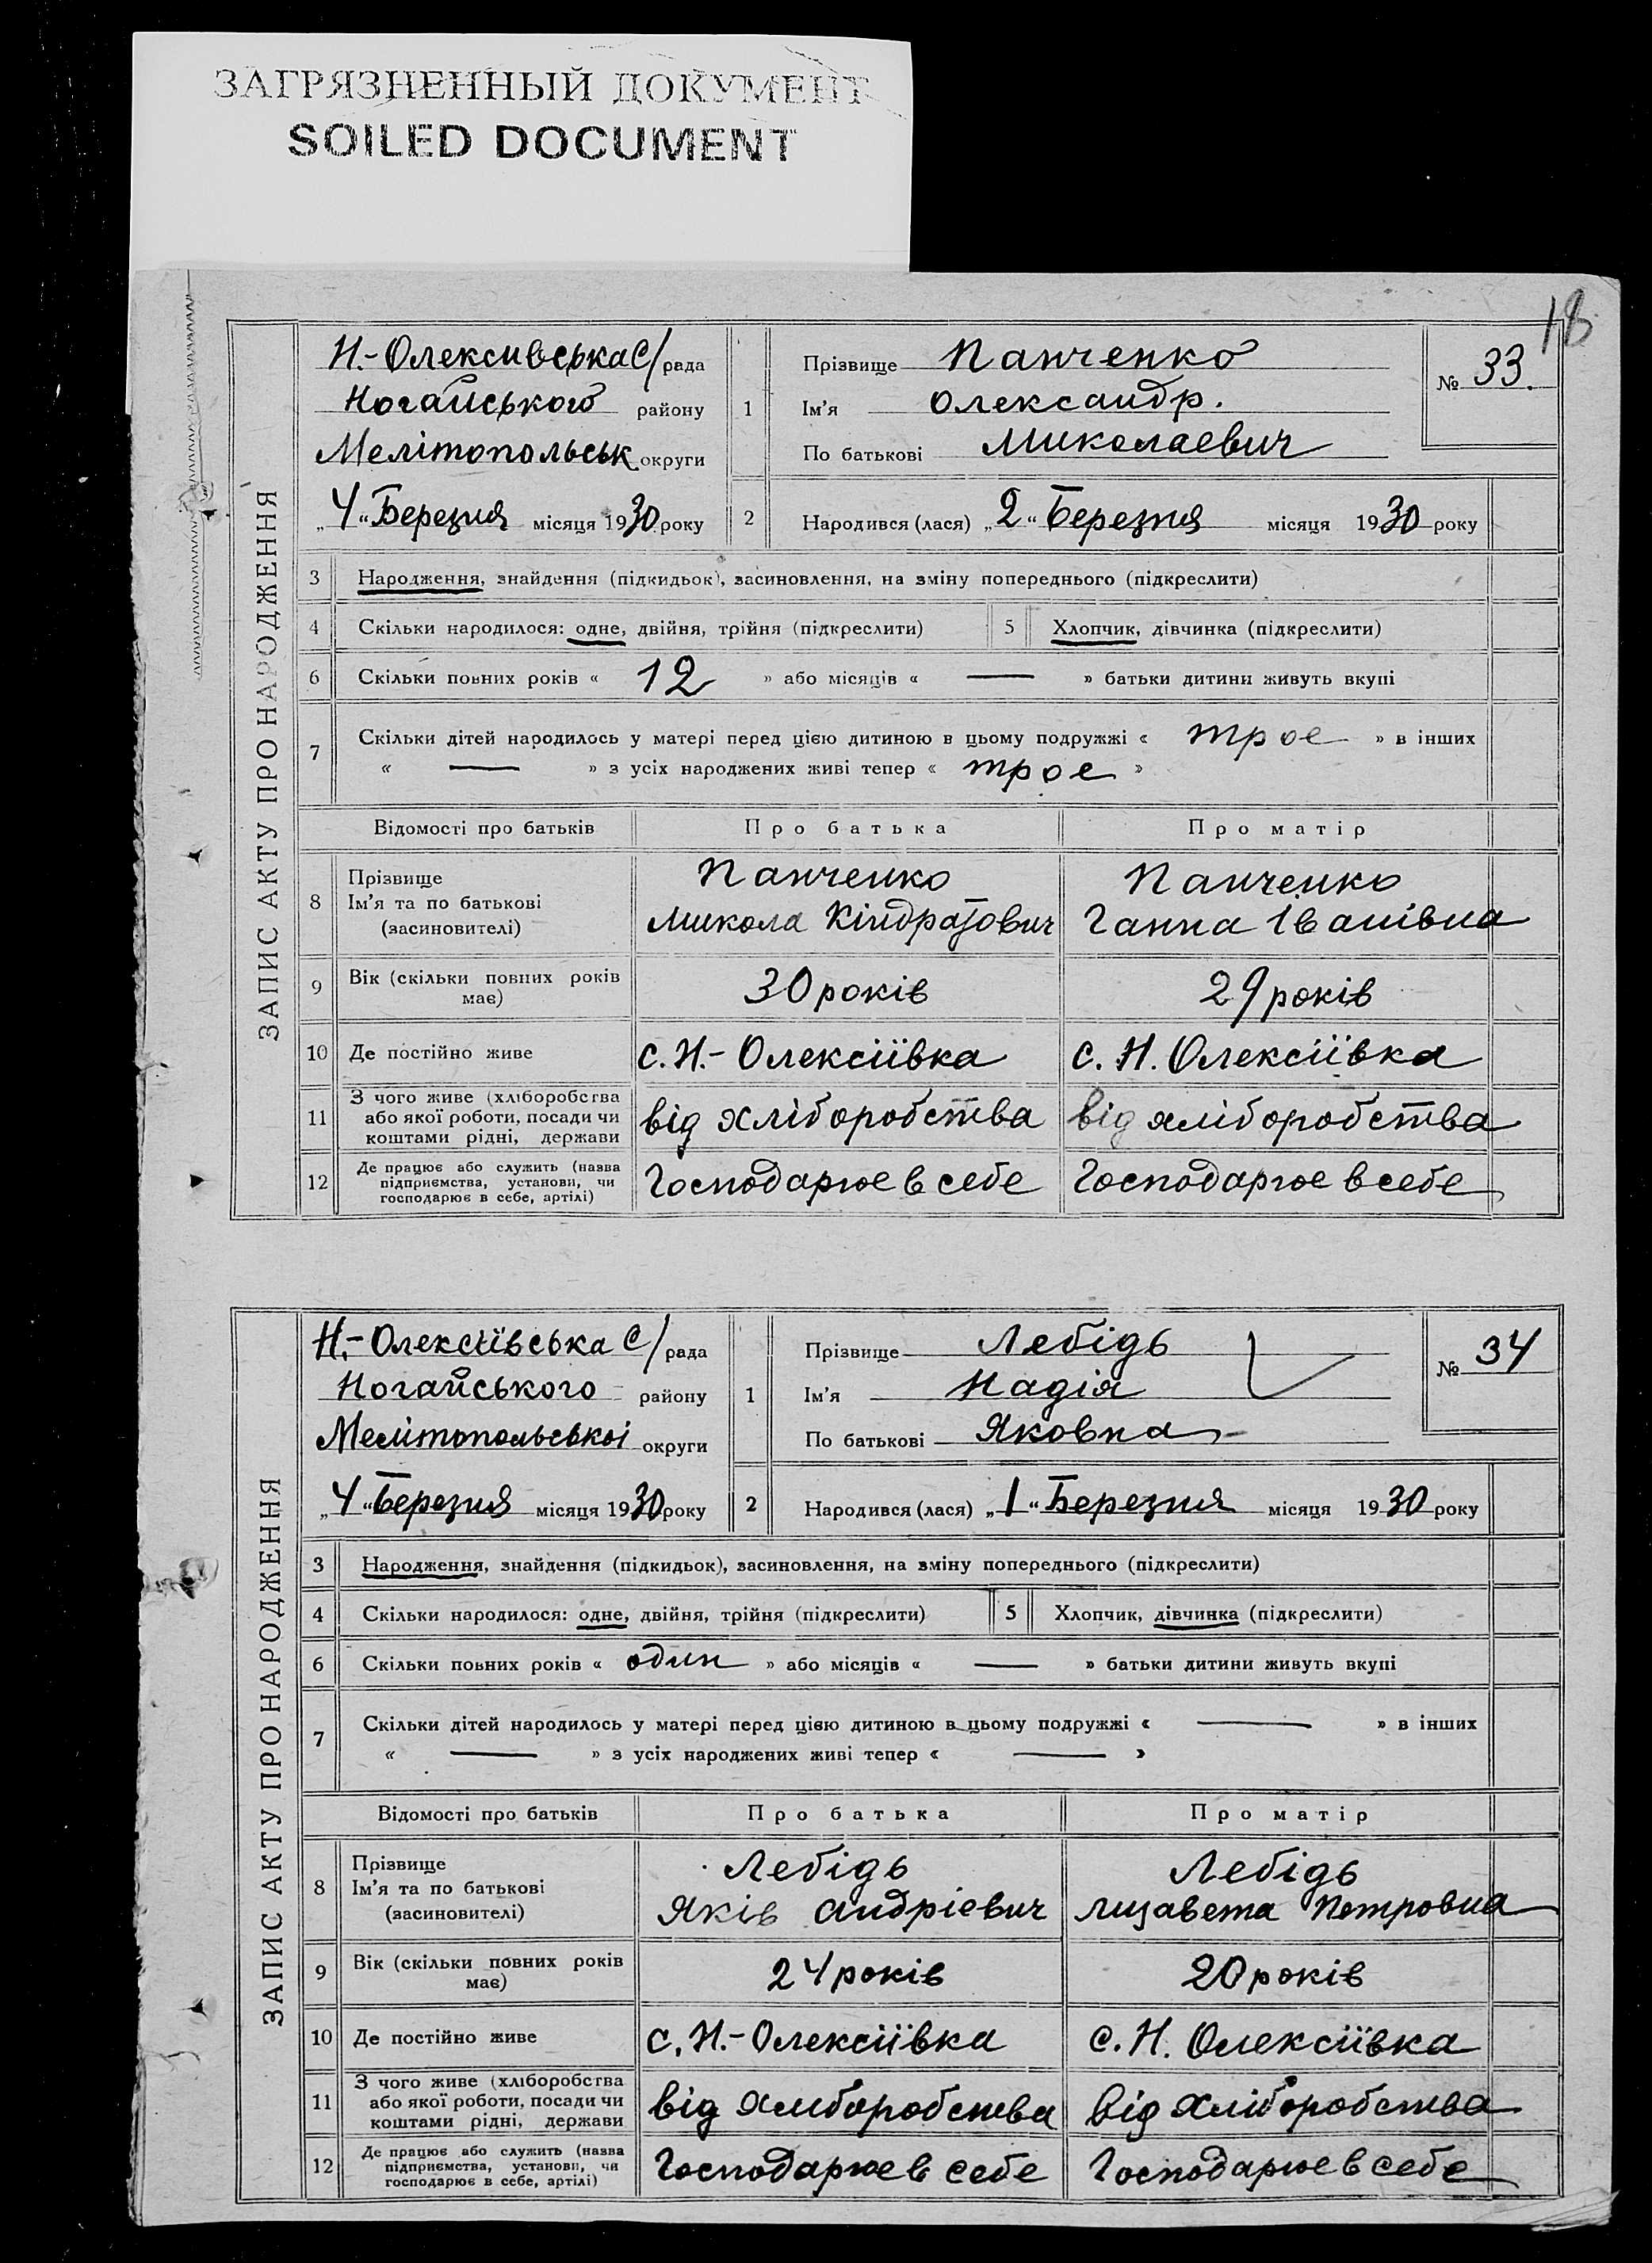 ЗАГРЯЗНЕННЫЙ ДОКУМЕНТ
SOILED DOCUMENT
18
ЗАПИС АКТУ ПРО НАРОДЖЕННЯ
Н.-Олексивська С/рада
Ногайського району
Мелітопольськ округи
„4“ Березня місяця 1930 року
1 Прізвище Панченко
Ім'я Олександр.
По батькові Миколаевич
№ 33.
2 Народився (лася) „2“ Березня місяця 1930 року
3 Народження, знайдення (підкидьок), засиновлення, на зміну попереднього (підкреслити)
4 Скільки народилося: одне, двійня, трійня (підкреслити) 5 Хлопчик, дівчинка (підкреслити)
6 Скільки повних років « 12 » або місяців « — » батьки дитини живуть вкупі
7 Скільки дітей народилось у матері перед цією дитиною в цьому подружжі « трое » в інших
« — » з усіх народжених живі тепер « трое »
Відомості про батьків Про батька Про матір
8 Прізвище Ім'я та по батькові (засиновителі)
Панченко Микола Кіндратович
Панченко Ганна Іванівна
9 Вік (скільки повних років має) 30 років 29 років
10 Де постійно живе с. Н.-Олексіївка с. Н. Олексіївка
11 З чого живе (хліборобства або якої роботи, посади чи коштами рідні, держави
від хліборобства від хліборобства
12 Де працює або служить (назва підприємства, установи, чи господарює в себе, артілі)
Господарюе в себе Господарюе в себе
ЗАПИС АКТУ ПРО НАРОДЖЕННЯ
Н.-Олексіївська С/рада
Ногайського району
Мелітопольської округи
„4“ Березня місяця 1930 року
1 Прізвище Лебідь
Ім'я Надія
По батькові Яковна
№ 34
2 Народився (лася) „1“ Березня місяця 1930 року
3 Народження, знайдення (підкидьок), засиновлення, на зміну попереднього (підкреслити)
4 Скільки народилося: одне, двійня, трійня (підкреслити) 5 Хлопчик, дівчинка (підкреслити)
6 Скільки повних років « один » або місяців « — » батьки дитини живуть вкупі
7 Скільки дітей народилось у матері перед цією дитиною в цьому подружжі « — » в інших
« — » з усіх народжених живі тепер « — »
Відомості про батьків Про батька Про матір
8 Прізвище Ім'я та по батькові (засиновителі)
Лебідь Яків Андріевич
Лебідь Лизавета Петровна
9 Вік (скільки повних років має) 24 років 20 років
10 Де постійно живе с. Н.-Олексіївка с. Н. Олексіївка
11 З чого живе (хліборобства або якої роботи, посади чи коштами рідні, держави
від хліборобства від хліборобства
12 Де працює або служить (назва підприємства, установи, чи господарює в себе, артілі)
Господарюе в себе Господарюе в себе